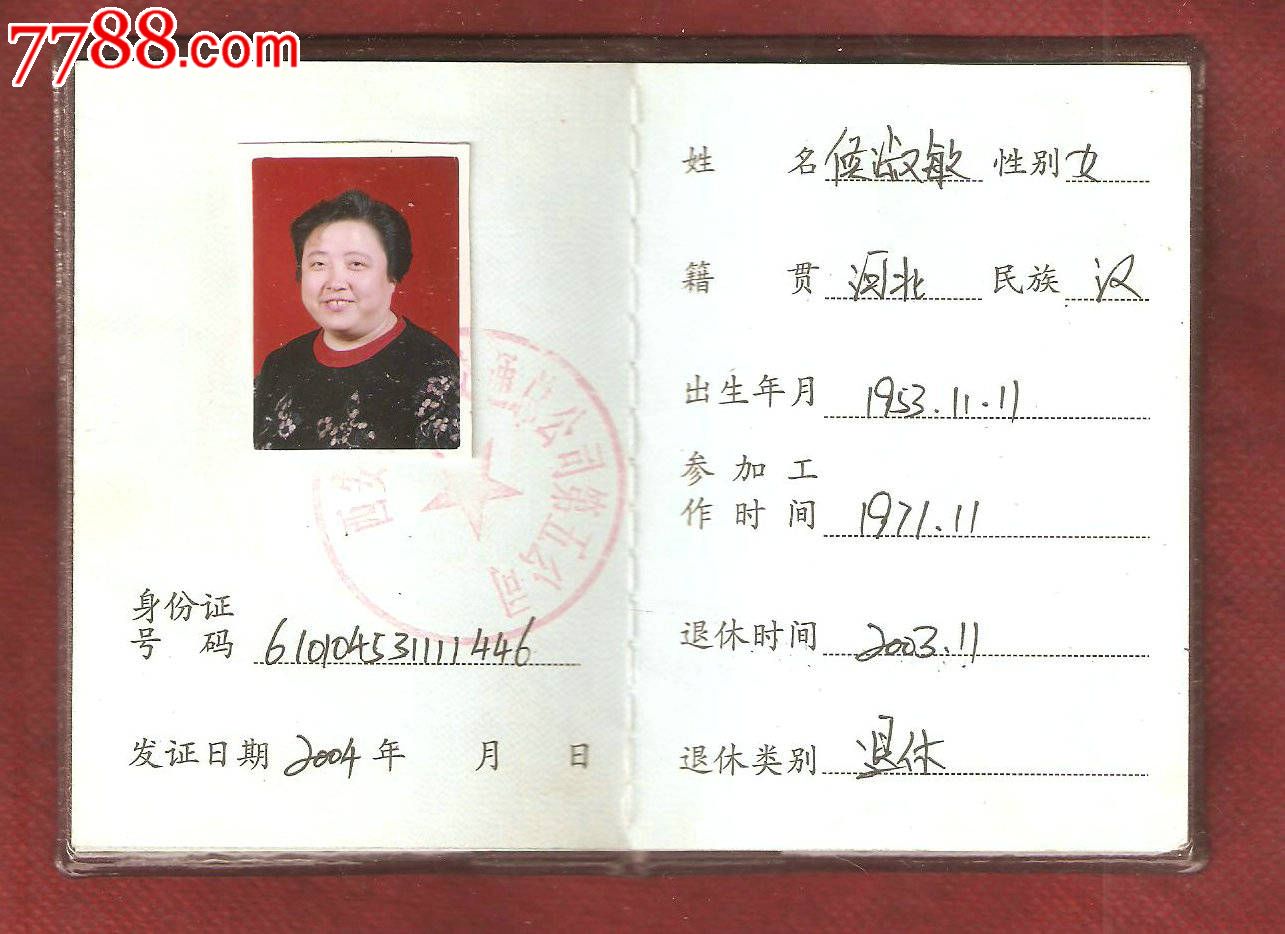 7788.com
姓 名 侯淑敏 性别 女
籍 贯 河北 民族 汉
出生年月 1953.11.11
参 加 工
作 时 间 1971.11
退休时间 2003.11
退休类别 退休
身份证
号 码 610104531111446
发证日期 2004 年 月 日
公司第五公司